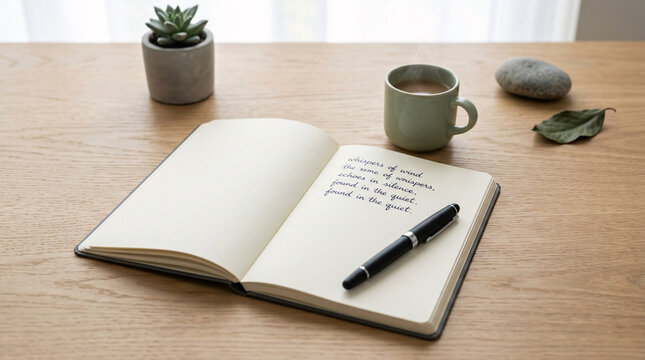 whispers of wind
the ume of whispers,
echoes in silence,
found in the quiet.
found in the quiet.